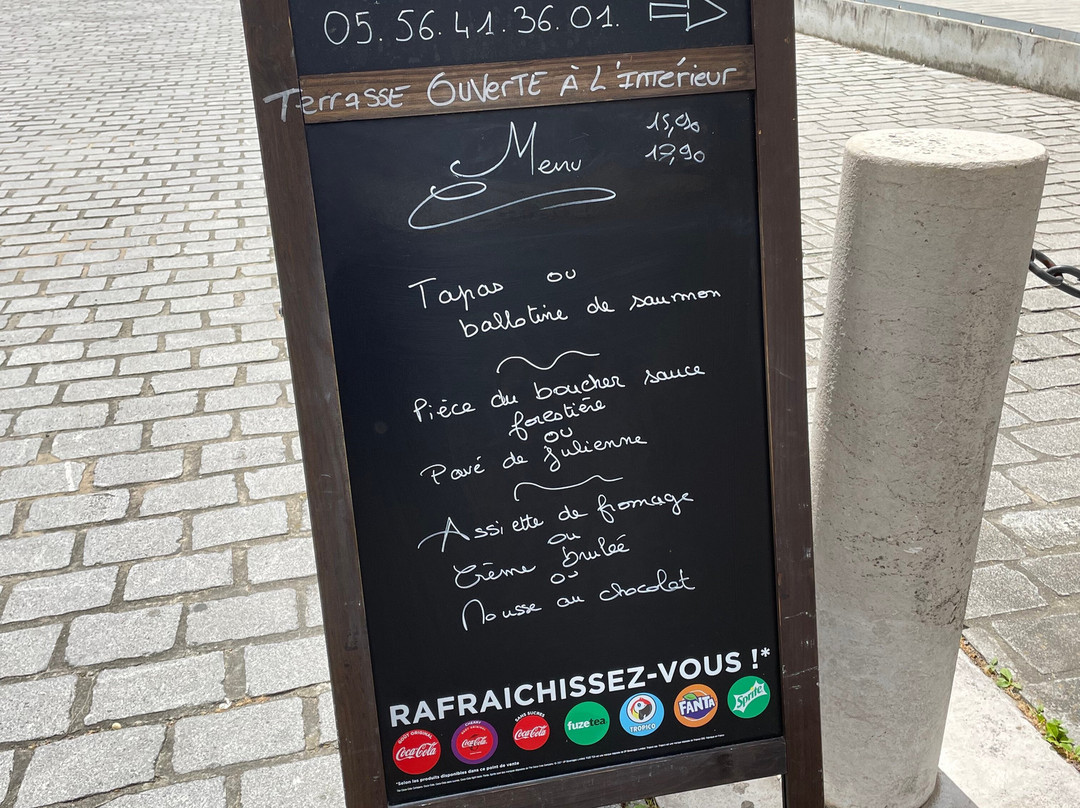 05.56.41.36.01.
Terrasse Ouverte À L'Intérieur
Menu
15,90
17,90
Tapas ou
ballotine de saumon
Pièce du boucher sauce
forestière
ou
Pavé de Julienne
Assiette de fromage
ou
Crème bruléé
ou
Mousse au chocolat
RAFRAICHISSEZ-VOUS !*
GOÛT ORIGINAL
Coca-Cola
CHERRY
GOÛT ORIGINAL
Coca-Cola
SANS SUCRES
Coca-Cola
fuzetea
TROPICO
FANTA
Sprite
*Selon les produits disponibles dans ce point de vente